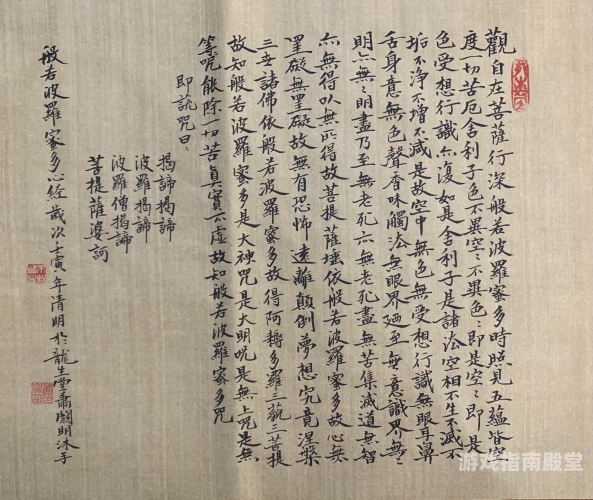 觀自在菩薩行深般若波羅蜜多時照見五蘊皆空
度切苦厄舍利子色不異空〻不異色〻即是空〻即是
色受想行識亦復如是舍利子是諸法空相不生不滅不
垢不淨不增不減是故空中無色無受想行識無眼耳鼻
舌身意無色聲香味觸法無眼界廼至無意識界無〻
明亦無〻明盡乃至無老死亦無老死盡無苦集滅道無智
亦無得以無所得故菩提薩埵依般若波羅蜜多故心無
罣礙無罣礙故無有恐怖遠離顛倒夢想究竟涅槃
三世諸佛依般若波羅蜜多故得阿耨多羅三藐三菩提
故知般若波羅蜜多是大神咒是大明咒是無上咒是無
等呪能除一切苦真實不虛故知般若波羅蜜多咒
即說咒曰〻
揭諦揭諦
波羅揭諦
波羅僧揭諦
菩提薩婆訶
般若波羅蜜多心經歲次壬寅年清明於龍生堂蕭關明沐手
游戏指南殿堂